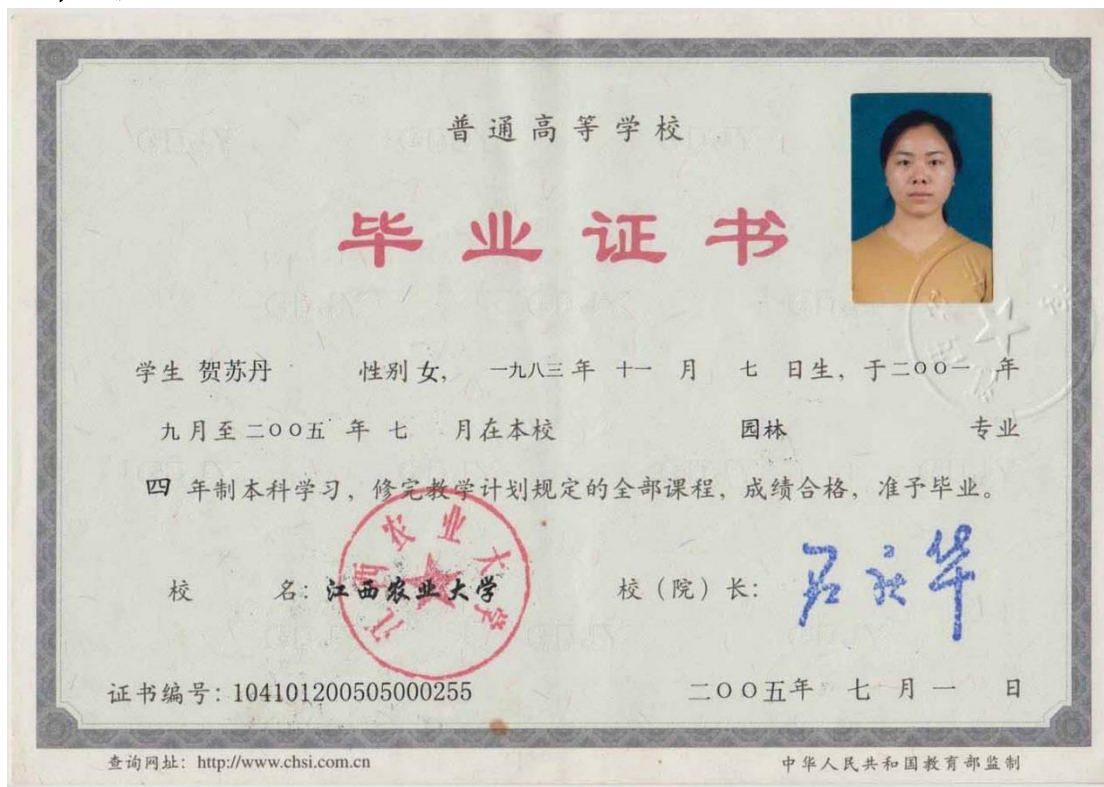 普通高等学校
毕业证书
学生 贺苏丹 性别 女, 一九八三 年 十一 月 七 日生, 于二〇〇一 年
九 月至 二〇〇五 年 七 月在本校 园林 专业
四 年制本科学习, 修完教学计划规定的全部课程, 成绩合格, 准予毕业。
江西农业大学
校 名: 江西农业大学 校(院)长:
证书编号: 104101200505000255 二〇〇五年 七 月 一 日
查询网址: http://www.chsi.com.cn 中华人民共和国教育部监制